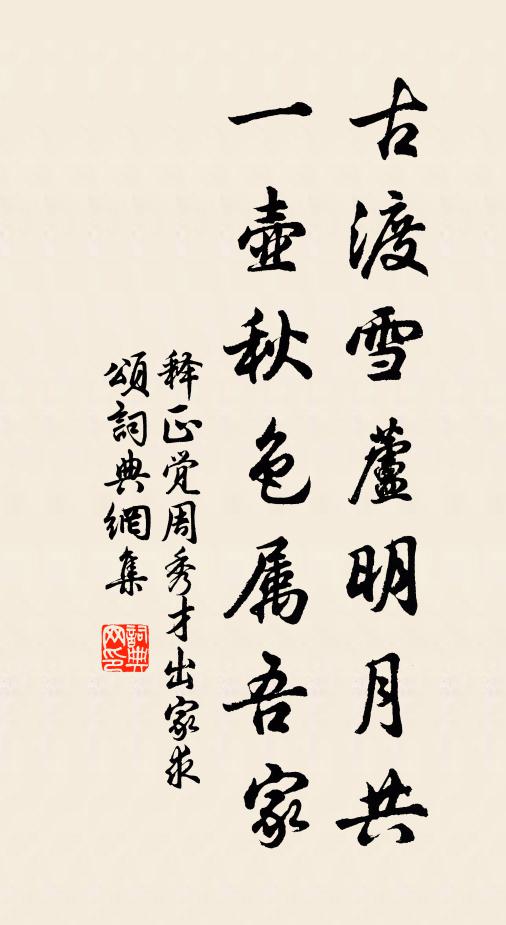 古渡雪蘆明月共
一壺秋色属吾家
释正觉周秀才出家求
頌詞典網集
詞典网印